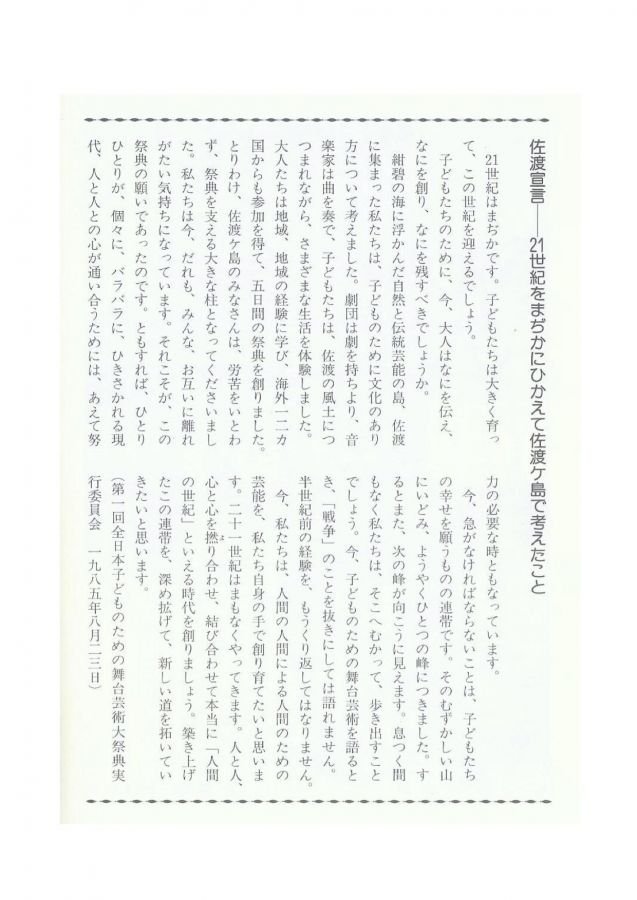 佐渡宣言――21世紀をまぢかにひかえて佐渡ケ島で考えたこと
21世紀はまぢかです。子どもたちは大きく育っ
て、この世紀を迎えるでしょう。
子どもたちのために、今、大人はなにを伝え、
なにを創り、なにを残すべきでしょうか。
紺碧の海に浮かんだ自然と伝統芸能の島、佐渡
に集まった私たちは、子どものために文化のあり
方について考えました。劇団は劇を持ちより、音
楽家は曲を奏で、子どもたちは、佐渡の風土につ
つまれながら、さまざまな生活を体験しました。
大人たちは地域、地域の経験に学び、海外一二カ
国からも参加を得て、五日間の祭典を創りました。
とりわけ、佐渡ケ島のみなさんは、労苦をいとわ
ず、祭典を支える大きな柱となってくださいまし
た。私たちは今、だれも、みんな、お互いに離れ
がたい気持ちになっています。それこそが、この
祭典の願いであったのです。ともすれば、ひとり
ひとりが、個々に、バラバラに、ひきさかれる現
代、人と人との心が通い合うためには、あえて努
力の必要な時ともなっています。
今、急がなければならないことは、子どもたち
の幸せを願うものの連帯です。そのむずかしい山
にいどみ、ようやくひとつの峰につきました。す
るとまた、次の峰が向こうに見えます。息つく間
もなく私たちは、そこへむかって、歩き出すこと
でしょう。今、子どものための舞台芸術を語ると
き、「戦争」のことを抜きにしては語れません。
半世紀前の経験を、もうくり返してはなりません。
今、私たちは、人間の人間による人間のための
芸能を、私たち自身の手で創り育てたいと思いま
す。二十一世紀はまもなくやってきます。人と人、
心と心を撚り合わせ、結び合わせて本当に「人間
の世紀」といえる時代を創りましょう。築き上げ
たこの連帯を、深め拡げて、新しい道を拓いてい
きたいと思います。
（第一回全日本子どものための舞台芸術大祭典実
行委員会　一九八五年八月二三日）